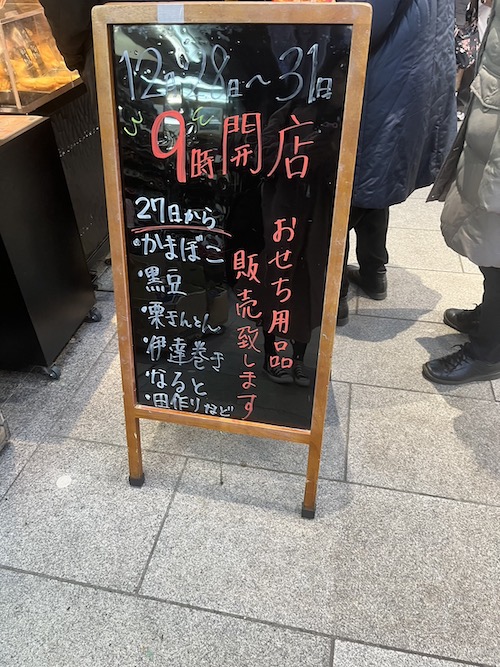 12月28日～31日
9時開店
おせち用品
販売致します
27日から
・かまぼこ
・黒豆
・栗きんとん
・伊達巻き
・なると
・田作りなど